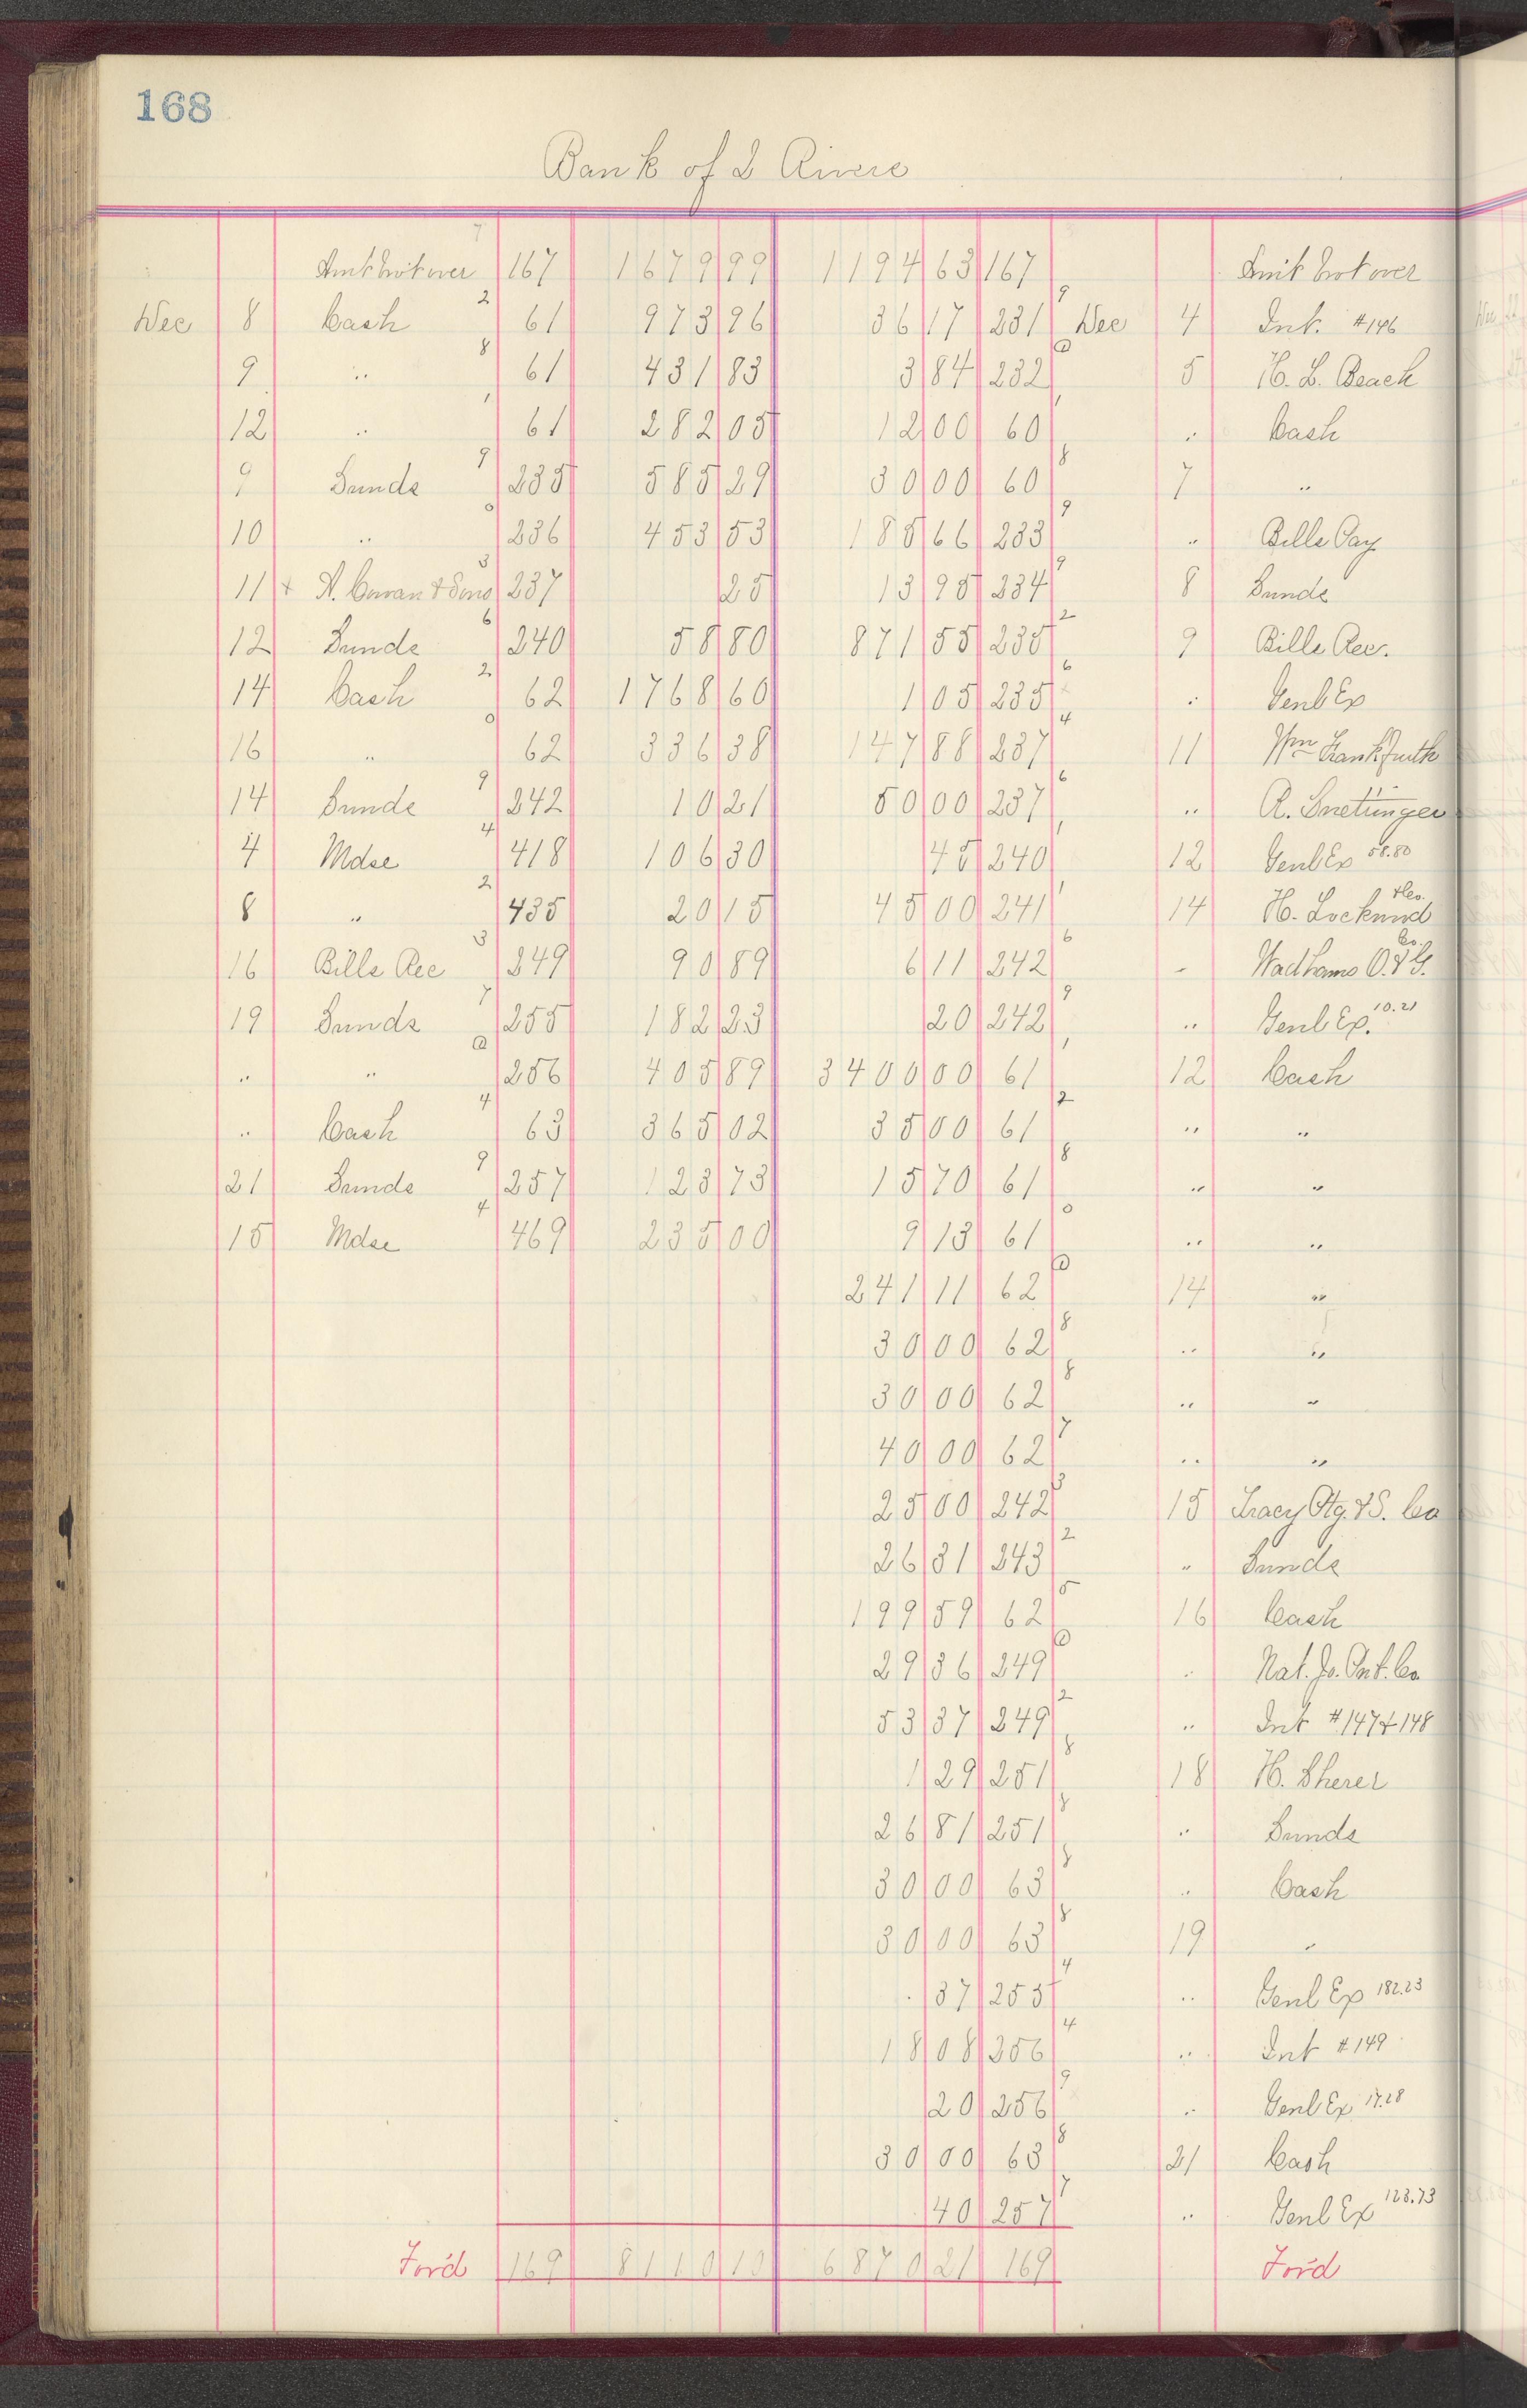 168
Bank of 2 Rivers
Amt brot over 167 1679 99 1194 63 167 Amt brot over
Dec 8 Cash 2 61 973 96 36 17 231 9 Dec 4 Int. #146
9 " 8 61 431 83 3 84 232 @ 5 H. L. Beach
12 " 1 61 282 05 12 00 60 1 " Cash
9 Sunds 9 235 585 29 30 00 60 8 7 "
10 " 0 236 453 53 185 66 233 9 " Bills Pay
11 + 3 237 25 13 95 234 9 8 Sunds
12 Sunds 6 240 58 80 871 55 235 2 9 Bills Rec.
14 Cash 2 62 1768 60 1 05 235 6 " Genl Ex
16 " 0 62 336 38 147 88 237 4 11 Wm Frankfurth
14 Sunds 9 242 10 21 50 00 237 6 " R.
4 Mdse 4 418 106 30 45 240 1 12 Genl Ex 58.80
8 " 2 435 20 15 45 00 241 1 14 H. & Co.
16 Bills Rec 3 249 90 89 6 11 242 6 " Wadhams O. & G. Co.
19 Sunds 7 255 182 23 20 242 9 " Genl Ex. 10.21
" " @ 256 405 89 3400 00 61 1 12 Cash
" Cash 4 63 365 02 35 00 61 2 " "
21 Sunds 9 257 123 73 15 70 61 8 " "
15 Mdse 4 469 235 00 9 13 61 0 " "
241 11 62 @ 14 "
30 00 62 8 " "
30 00 62 8 " "
40 00 62 7 " "
25 00 242 3 15 Tracy Ptg. & S. Co
26 31 243 2 " Sunds
199 59 62 5 16 Cash
29 36 249 @ " Nat. Co
53 37 249 2 " Int #147 & 148
1 29 251 8 18 H. Sherer
26 81 251 8 " Sunds
30 00 63 8 " Cash
30 00 63 8 19 "
37 255 4 " Genl Ex 182.23
18 08 256 4 " Int #149
20 256 9 " Genl Ex 17.28
30 00 63 8 21 Cash
40 257 7 " Genl Ex 123.73
For'd 169 8110 10 6870 21 169 For'd